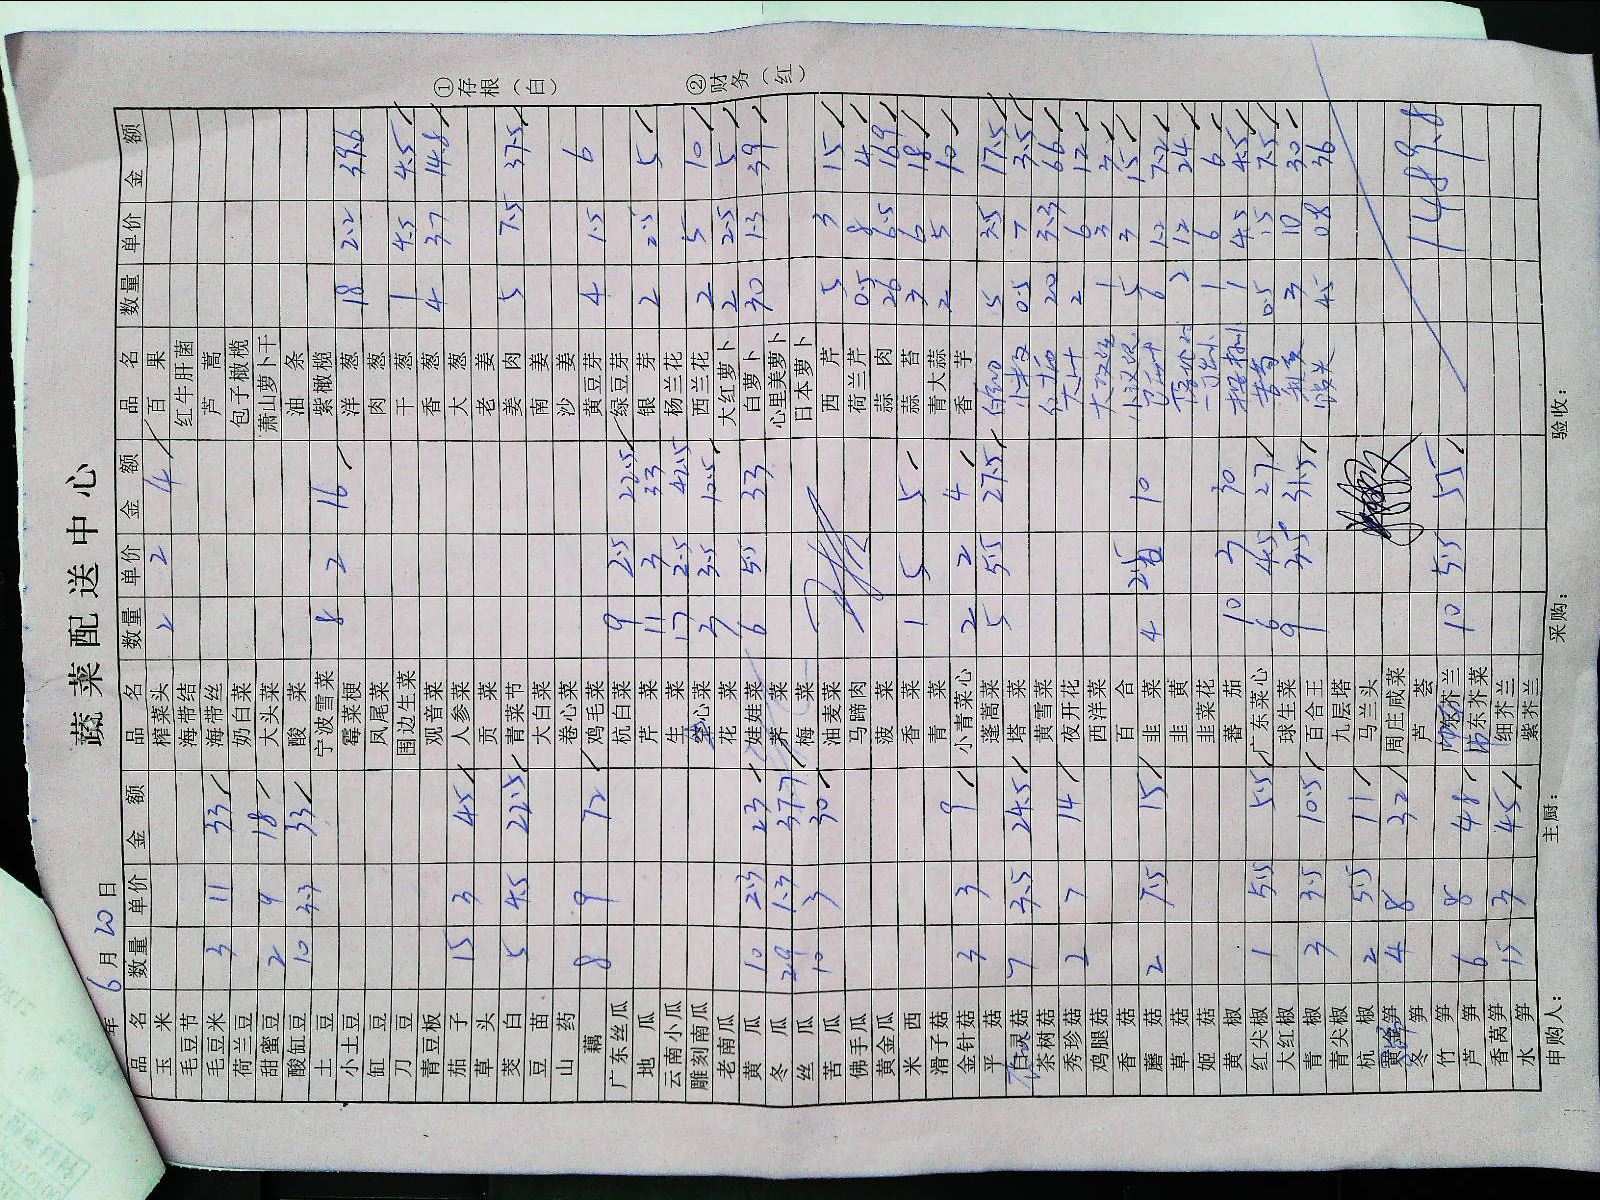 蔬菜配送中心
①存根（白）
②财务（红）
年 6月20日
品名 数量 单价 金额 品名 数量 单价 金额 品名 数量 单价 金额
玉米 榨菜头 2 2 4 百果
毛豆节 海带结 红牛肝菌
毛豆米 3 11 33 海带丝 芦蒿
荷兰豆 奶白菜 包子橄榄
甜蜜豆 2 9 18 大头菜 萧山萝卜干
酸缸豆 10 3.3 33 酸菜 油条
土豆 宁波雪菜 8 2 16 紫橄榄
小土豆 霉菜梗 洋葱 18 2.2 39.6
缸豆 凤尾菜 肉葱
刀豆 围边生菜 干葱 1 4.5 4.5
青豆板 观音菜 香葱 4 3.7 14.8
茄子 15 3 45 人参菜 大葱
草头 贡菜 老姜
茭白 5 4.5 22.5 青菜节 姜肉 5 7.5 37.5
豆苗 大白菜 南姜
山药 卷心菜 沙姜
藕 8 9 72 鸡毛菜 黄豆芽 4 1.5 6
广东丝瓜 杭白菜 9 2.5 22.5 绿豆芽
地瓜 芹菜 11 3 33 银芽 2 2.5 5
云南小瓜 生菜 17 2.5 42.5 杨兰花
雕刻南瓜 空心菜 3 3.5 10.5 西兰花 2 5 10
老南瓜 花菜 大红萝卜 2 2.5 5
黄瓜 10 2.3 23 娃娃菜 6 5.5 33 白萝卜 30 1.3 39
冬瓜 29 1.3 37.7 荠菜 心里美萝卜
丝瓜 10 3 30 梅菜 日本萝卜
苦瓜 油麦菜 西芹 5 3 15
佛手瓜 马蹄肉 荷兰芹 0.5 8 4
黄金瓜 菠菜 蒜肉 26 6.5 169
米西 香菜 1 5 5 蒜苔 3 6 18
滑子菇 青菜 青大蒜 2 5 10
金针菇 3 3 9 小青菜心 2 2 4 香芋
平菇 蓬蒿菜 5 5.5 27.5 5 3.5 17.5
白灵菇 7 3.5 24.5 塔菜 小米 0.5 7 3.5
茶树菇 黄雪菜 20 3.3 66
秀珍菇 2 7 14 夜开花 大叶 2 6 12
鸡腿菇 西洋菜 1 3 3
香菇 百合 5 3 15
蘑菇 2 7.5 15 韭菜 4 2.5 10 6 1.2 7.2
草菇 韭黄 2 12 24
姬菇 韭菜花 1 6 6
黄椒 蕃茄 10 3 30 1 4.5 4.5
红尖椒 1 5.5 5.5 广东菜心 6 4.5 27 0.5 15 7.5
大红椒 球生菜 9 3.5 31.5 3 10 30
青椒 3 3.5 10.5 百合王 馒头 45 0.8 36
青尖椒 九层塔
杭椒 2 5.5 11 马兰头
笋 4 8 32 周庄咸菜
冬笋 芦荟
竹笋 芥兰 10 5.5 55
芦笋 6 8 48 广东芥菜
香莴笋 15 3 45 细芥兰
水笋 紫芥兰
1489.8
申购人： 主厨： 采购： 验收：